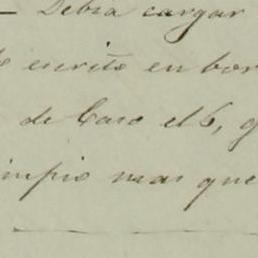 — Debra cargar
escrito en bor
de Caso el 6, q
impio mas que